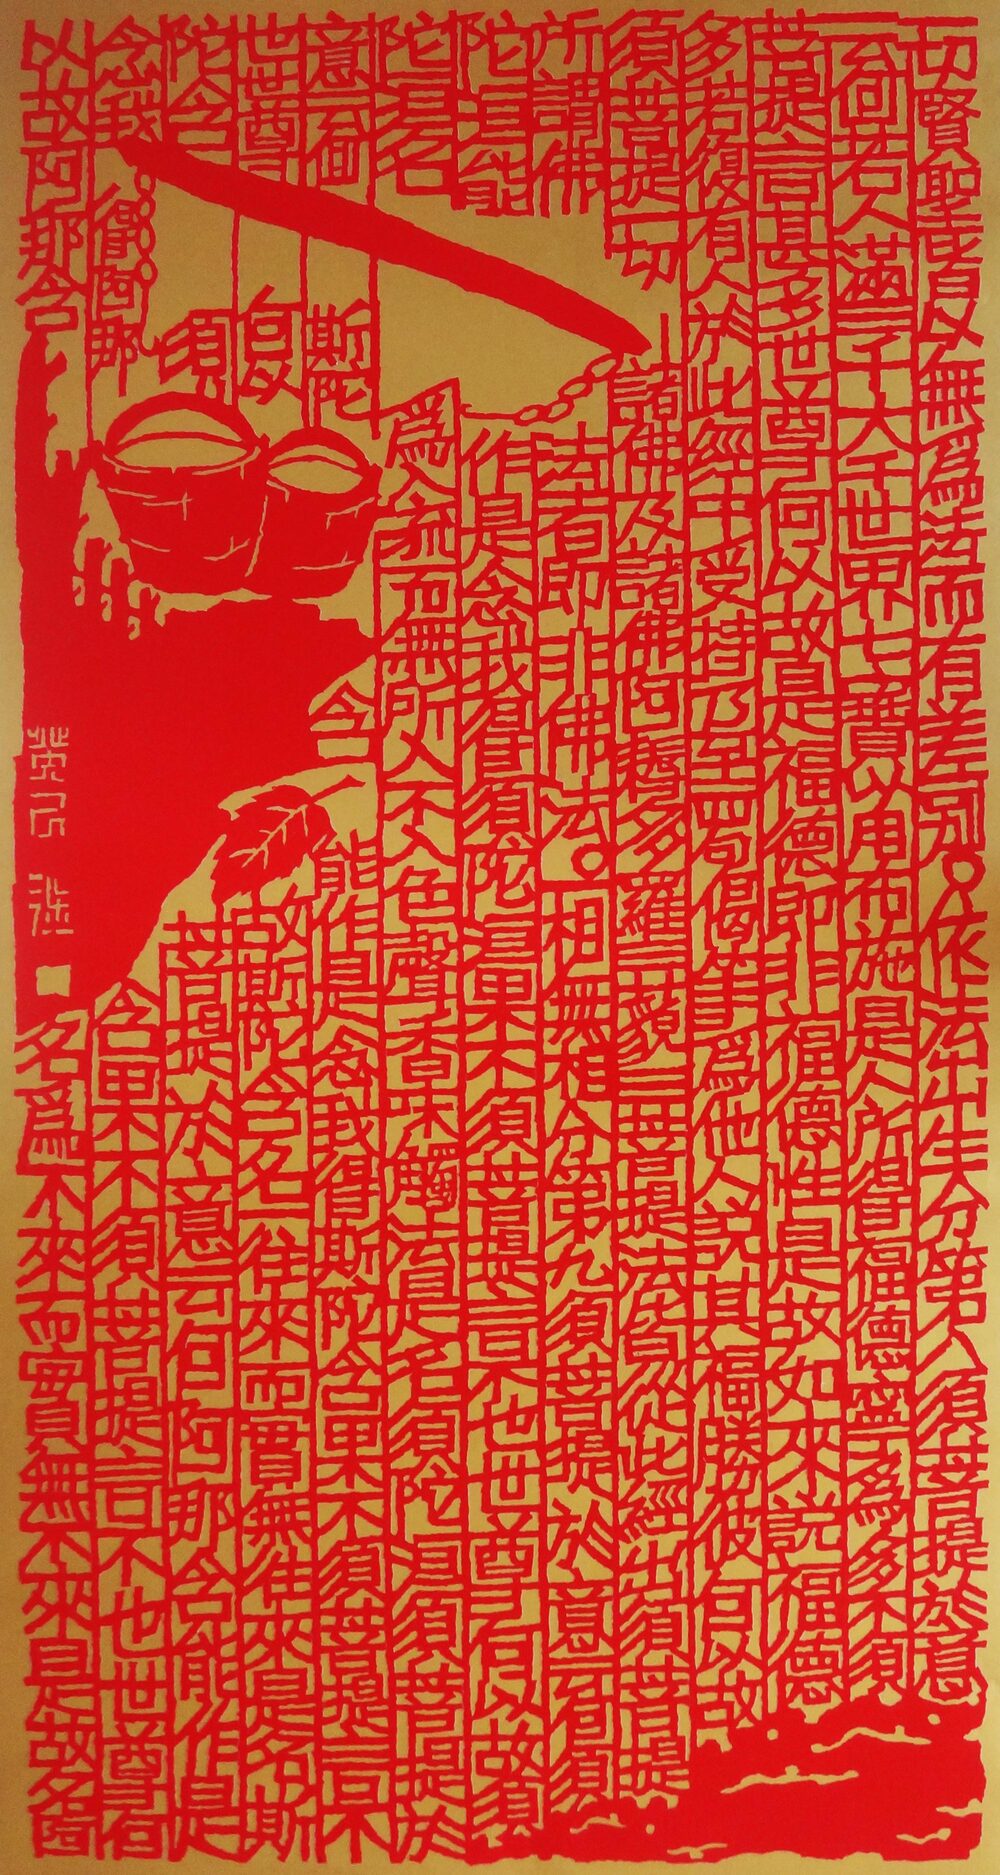 一切賢聖皆以無為法而有差別。依法出生分第八須菩提於意
云何若人滿三千大千世界七寶以用布施是人所得福德寧為多不須
菩提言甚多世尊何以故是福德即非福德性是故如來說福德
多若復有人於此經中受持乃至四句偈等為他人說其福勝彼何以故
須菩提一切諸佛及諸佛阿耨多羅三藐三菩提法皆從此經出須菩提
所謂佛法者即非佛法。一相無相分第九須菩提於意云何須
陀洹能作是念我得須陀洹果不須菩提言不也世尊何以故須
陀洹名為入流而無所入不入色聲香味觸法是名須陀洹須菩提於
意云何斯陀含能作是念我得斯陀含果不須菩提言不
也世尊何以故斯陀含名一往來而實無往來是名斯
陀含須菩提於意云何阿那含能作是
念我得阿那含果不須菩提言不也世尊何
以故阿那含名為不來而實無不來是故名阿